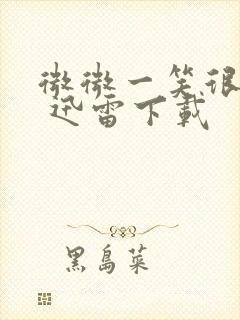 微微一笑很
迅雷下載
黑島菜